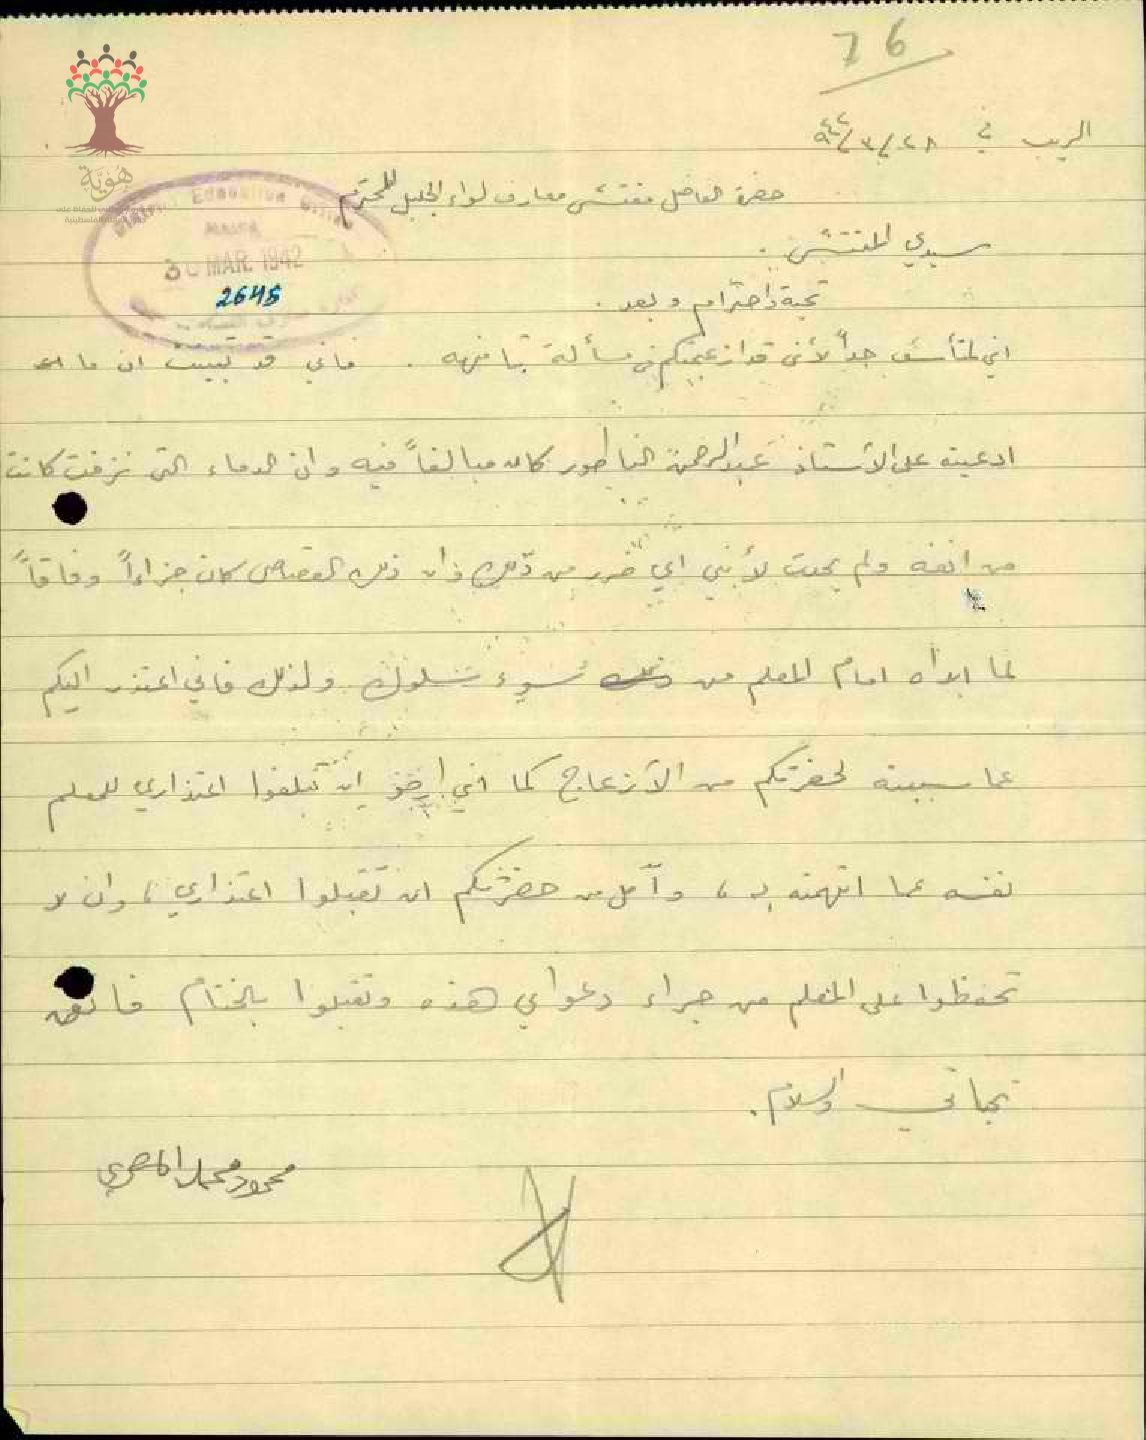 76
الزيب في ٢٨/٣/٩٤٢
هويّة
District Education Office
HAIFA
30 MAR. 1942
2645
حضرة الفاضل مفتش معارف لواء الجليل المحترم
سيدي المفتش .
تحية واحترام وبعد .
اني لمتأسف جداً لأنني قد ازعجتكم في مسألة تافهة . فاني قد تبينت ان ما
ادعيته على الأستاذ عبد الرحمن الناطور كان مبالغاً فيه وان الدماء التي نزفت كانت
من انفه ولم يحدث لأبني اي ضرر من ذلك وان ذلك القصاص كان جزاءاً وفاقاً
لما ابداه امام المعلم من سوء سلوك ولذلك فاني اعتذر اليكم
عما سببته لحضرتكم من الأزعاج كما اني ارجو ان تبلغوا اعتذاري للمعلم
نفسه عما اتهمته به ، وآمل من حضرتكم ان تقبلوا اعتذاري ، وان لا
تحفظوا على المعلم من جراء دعواي هذه وتقبلوا بالختام فائق
تحياتي والسلام .
محمود محمد المصري